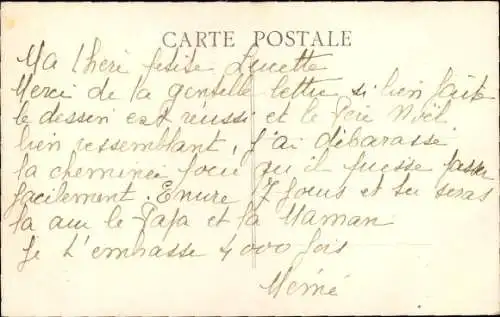 CARTE POSTALE
Ma Cheri petite Lucette
Merci de ta gentille lettre si bien faite
le dessin est réussi et le Père Noël
bien ressemblant, j'ai débarassé
la cheminée pour qu'il puesse passer
facilement. Encore 7 jours et tu seras
là avec le Papa et la Maman
Je t'embrasse 4000 fois
Mémé